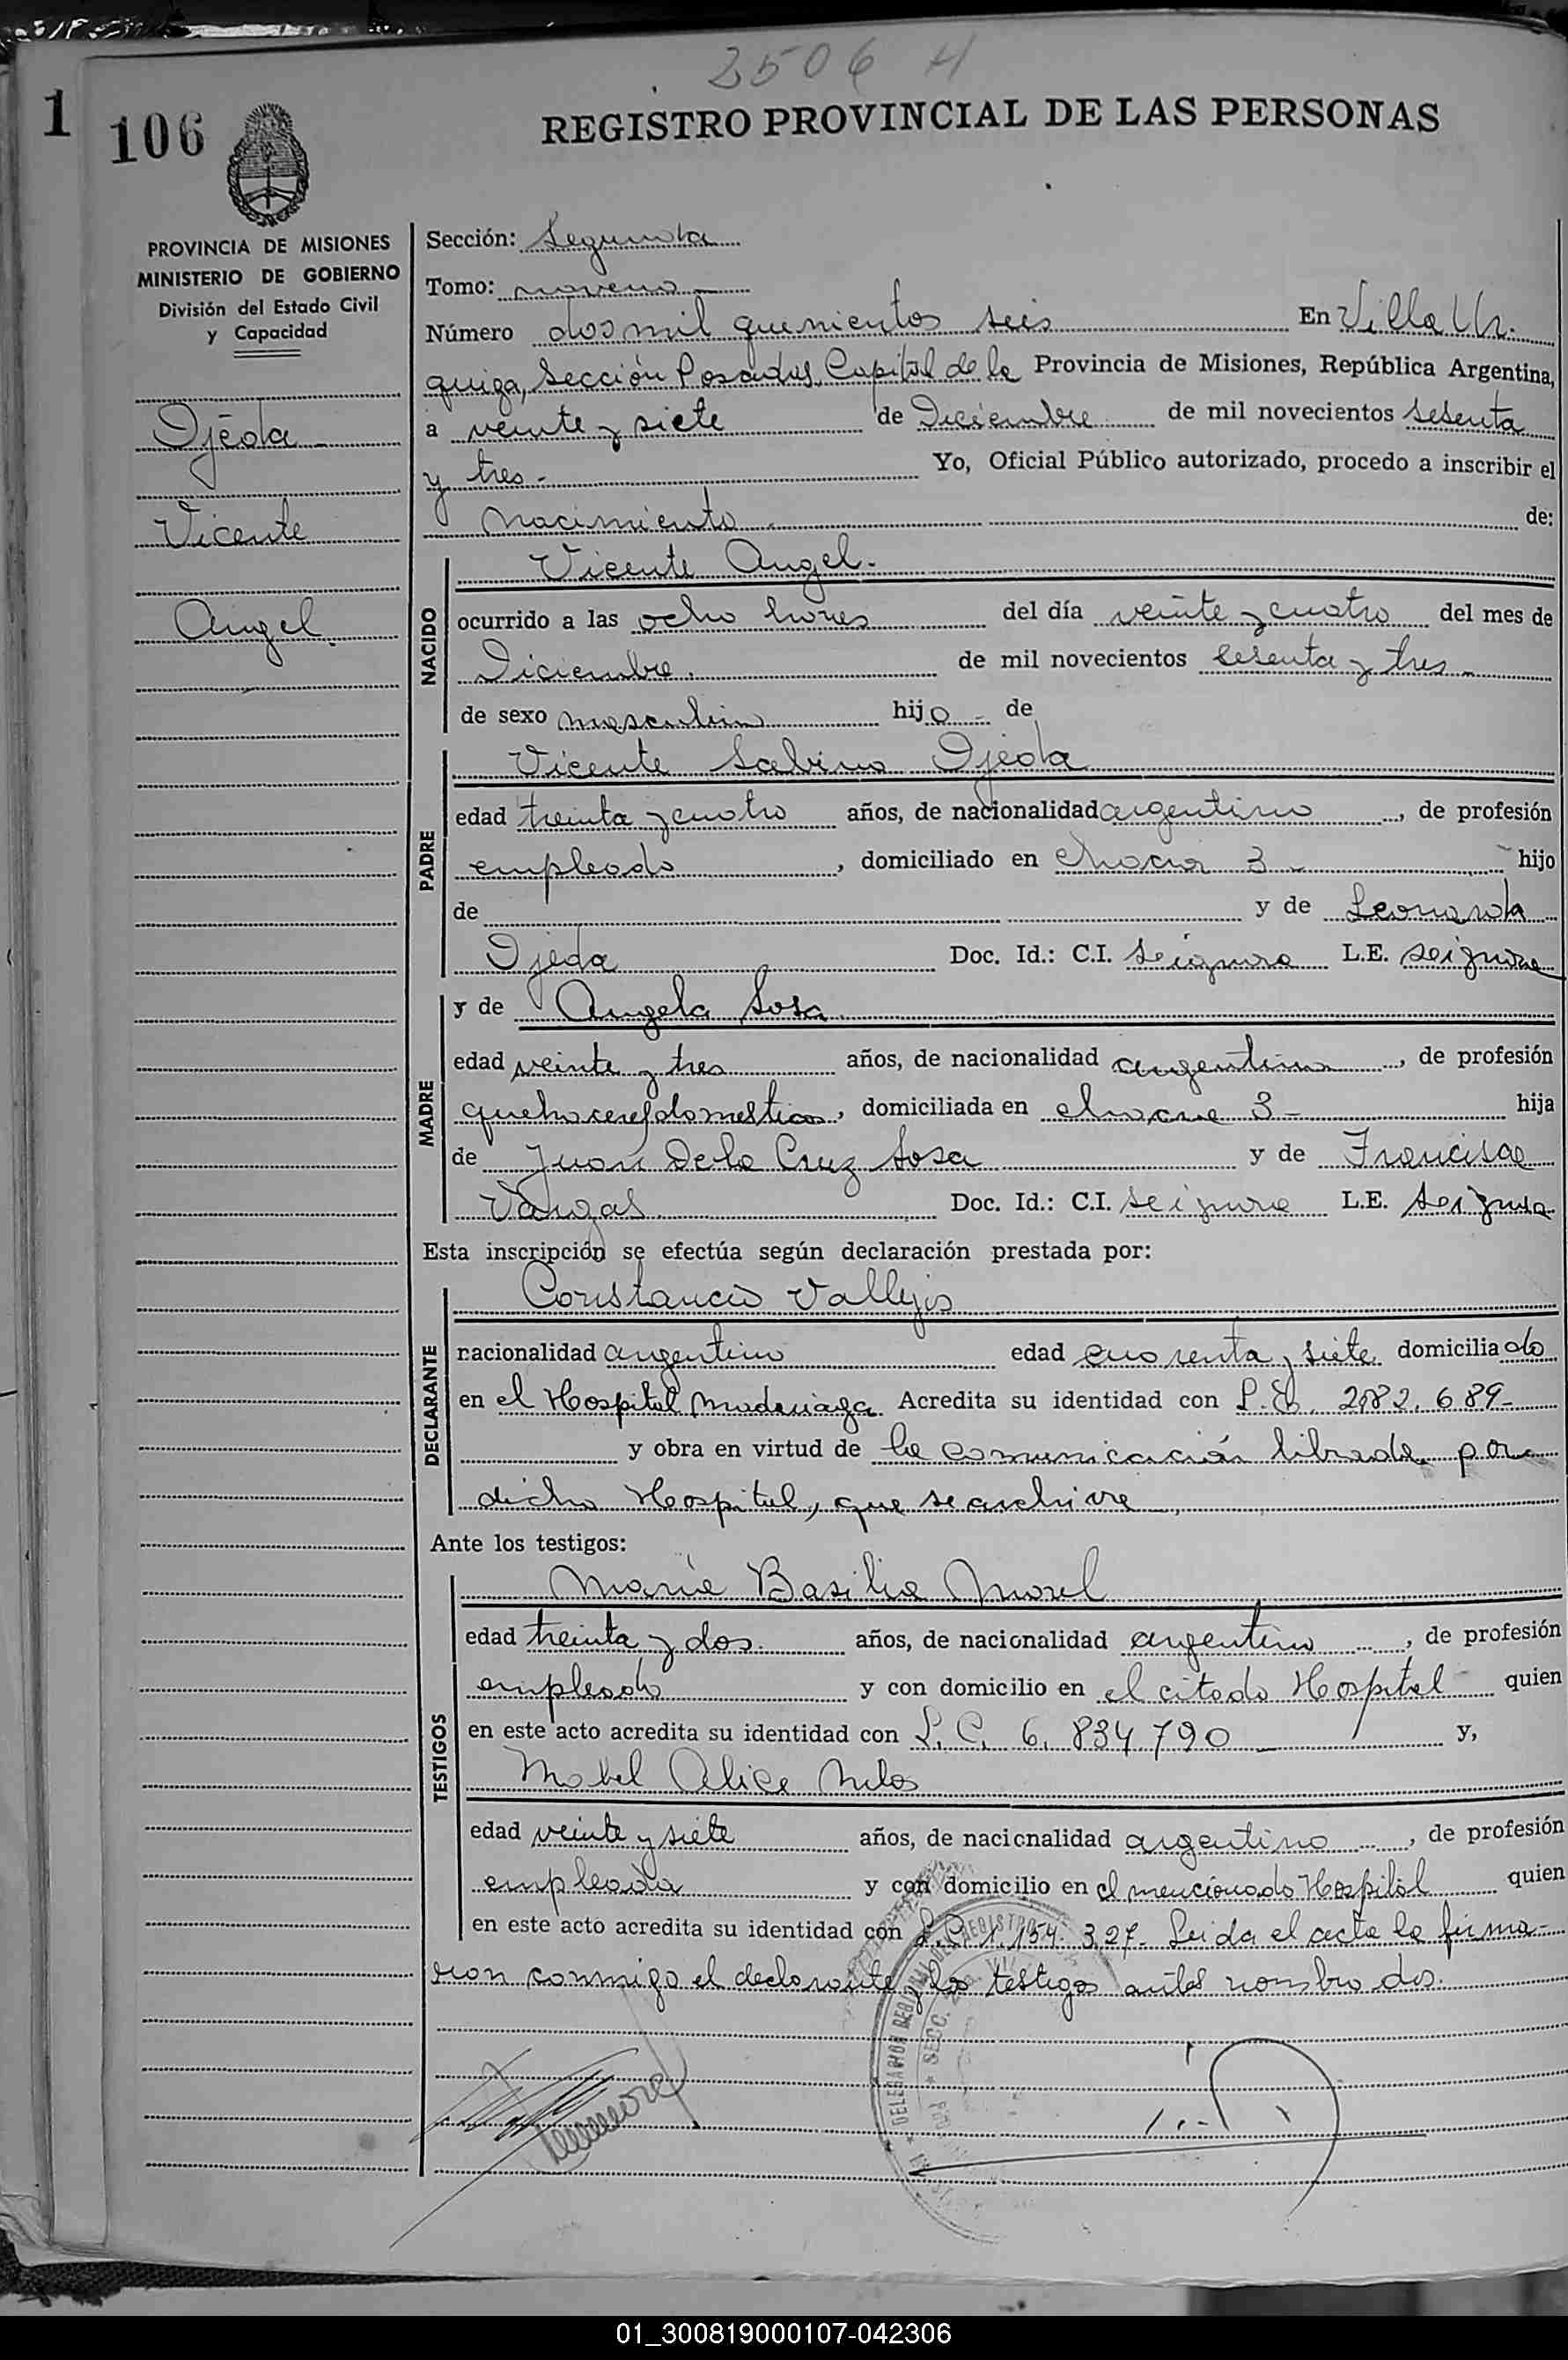 2506 H
1
106
REGISTRO PROVINCIAL DE LAS PERSONAS
PROVINCIA DE MISIONES
MINISTERIO DE GOBIERNO
División del Estado Civil
y Capacidad
Ojeda
Vicente
Angel
Sección: Segunda
Tomo: noveno
Número dos mil quenientos seis En Villa Ur-
quiza, Sección Posadas, Capital de la Provincia de Misiones, República Argentina,
a veinte y siete de Diciembre de mil novecientos sesenta
y tres.- Yo, Oficial Público autorizado, procedo a inscribir el
nacimiento de:
NACIDO
Vicente Angel.-
ocurrido a las ocho horas del día veinte y cuatro del mes de
Diciembre. de mil novecientos sesenta y tres
de sexo masculino hijo - de
PADRE
Vicente Sabino Ojeda
edad treinta y cuatro años, de nacionalidad argentino, de profesión
empleado, domiciliado en chacra 3 - hijo
de y de Leonarda
Ojeda Doc. Id.: C.I. se ignora L.E. se ignora
MADRE
y de Angela Sosa
edad veinte y tres años, de nacionalidad argentina, de profesión
quehaceres domesticos, domiciliada en chacra 3 - hija
de Juan De la Cruz Sosa y de Francisca
Vargas. Doc. Id.: C.I. se ignora L.E. se ignora
Esta inscripción se efectúa según declaración prestada por:
DECLARANTE
Constancio Vallejos
nacionalidad argentino edad cuarenta y siete domiciliado
en el Hospital Madariaga Acredita su identidad con L.E. 2.182.689-
y obra en virtud de la comunicación librada por
dicho Hospital, que se archiva
Ante los testigos:
TESTIGOS
Maria Basilia Morel
edad treinta y dos. años, de nacionalidad argentino, de profesión
empleado y con domicilio en el citado Hospital quien
en este acto acredita su identidad con L.C. 6.834.790 y,
Mabel Alice Melos
edad veinte y siete años, de nacionalidad argentino, de profesión
empleada y con domicilio en el mencionado Hospital quien
en este acto acredita su identidad con L.C. 1.154.327.- Leida el acta la firma-
ron conmigo el declarante y los testigos antes nombrados.
DELEGACION REGISTRO
SECC. 2da
01_300819000107-042306